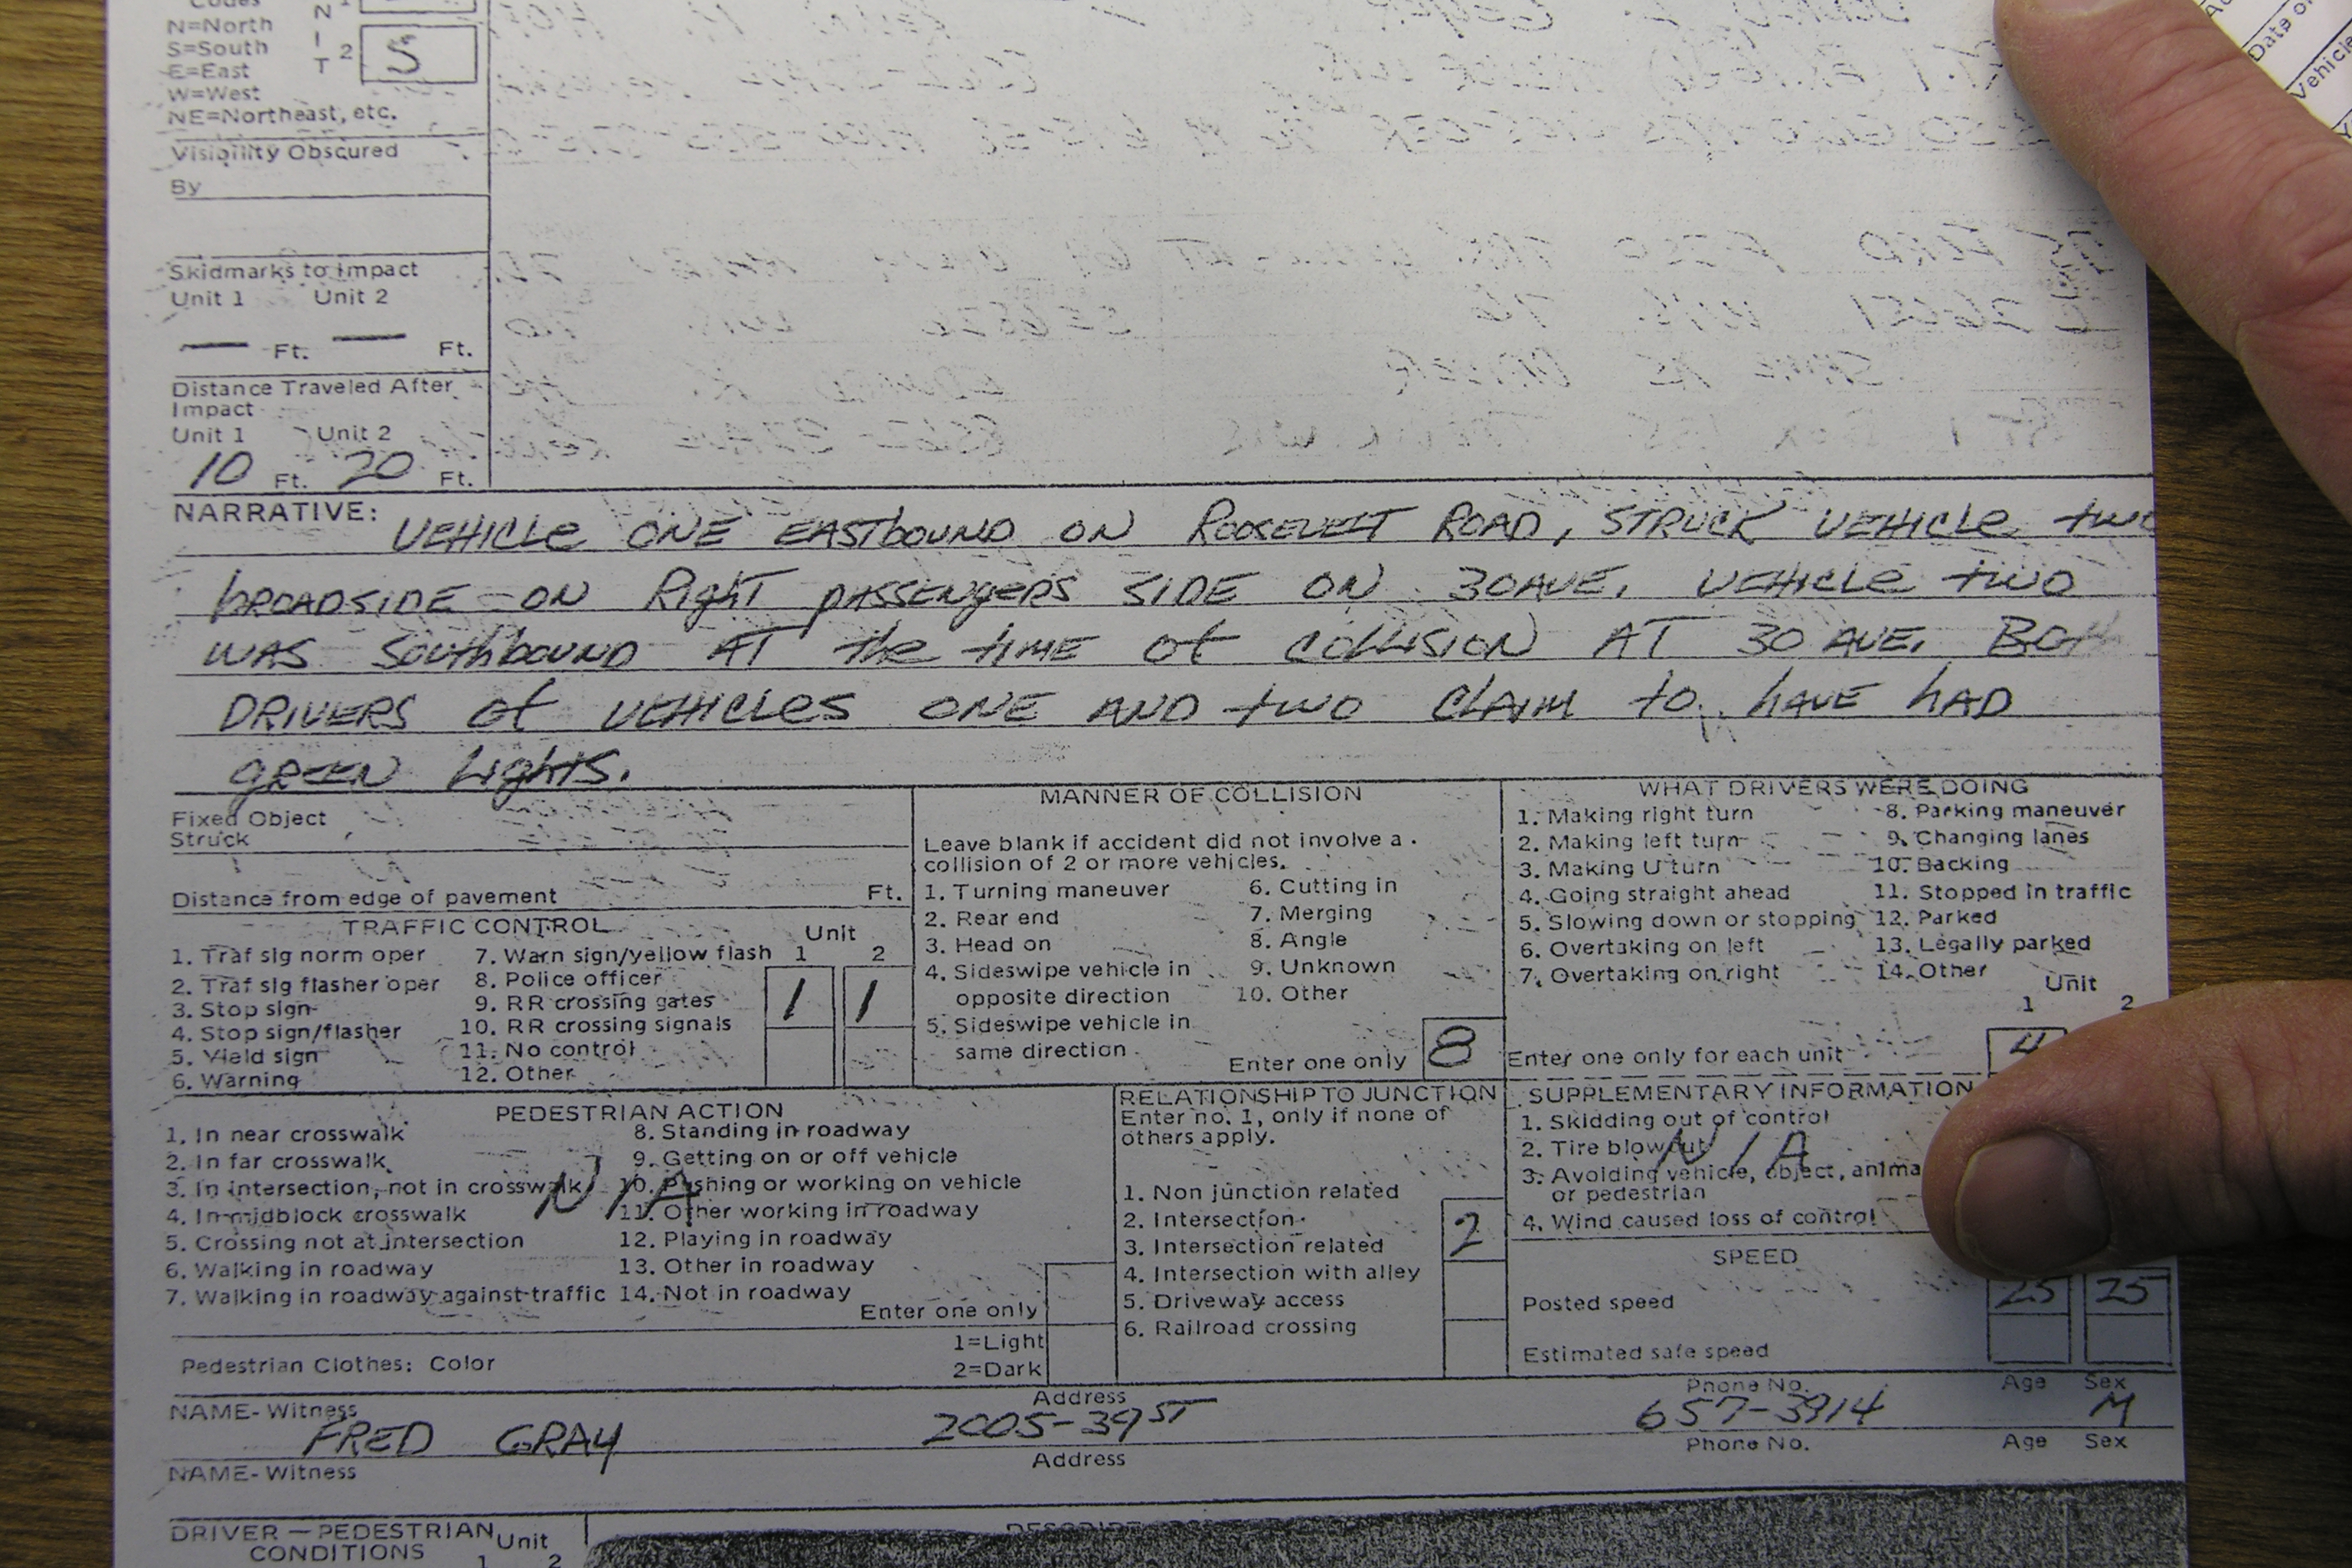 Codes
N=North
S=South
E=East
W=West
NE=Northeast, etc.
N
I
T
1
2
S
Visibility Obscured
By
Skidmarks to Impact
Unit 1 Unit 2
— Ft. — Ft.
Distance Traveled After
Impact
Unit 1 Unit 2
10 Ft. 20 Ft.
NARRATIVE: VEHICLE ONE EASTBOUND ON ROOSEVELT ROAD, STRUCK VEHICLE TWO
BROADSIDE ON RIGHT PASSENGERS SIDE ON 30AVE. VEHICLE TWO
WAS SOUTHBOUND AT THE TIME OF COLLISION AT 30 AVE. BOTH
DRIVERS OF VEHICLES ONE AND TWO CLAIM TO HAVE HAD
GREEN LIGHTS.
Fixed Object
Struck
Distance from edge of pavement Ft.
TRAFFIC CONTROL
Unit
1 2
1. Traf sig norm oper 7. Warn sign/yellow flash
2. Traf sig flasher oper 8. Police officer
3. Stop sign 9. RR crossing gates
4. Stop sign/flasher 10. RR crossing signals
5. Yield sign 11. No control
6. Warning 12. Other
1 1
MANNER OF COLLISION
Leave blank if accident did not involve a
collision of 2 or more vehicles.
1. Turning maneuver 6. Cutting in
2. Rear end 7. Merging
3. Head on 8. Angle
4. Sideswipe vehicle in 9. Unknown
opposite direction 10. Other
5. Sideswipe vehicle in
same direction
Enter one only 8
WHAT DRIVERS WERE DOING
1. Making right turn 8. Parking maneuver
2. Making left turn 9. Changing lanes
3. Making U turn 10. Backing
4. Going straight ahead 11. Stopped in traffic
5. Slowing down or stopping 12. Parked
6. Overtaking on left 13. Legally parked
7. Overtaking on right 14. Other
Unit
1 2
Enter one only for each unit 4
PEDESTRIAN ACTION
1. In near crosswalk 8. Standing in roadway
2. In far crosswalk 9. Getting on or off vehicle
3. In intersection, not in crosswalk 10. Pushing or working on vehicle
4. In midblock crosswalk 11. Other working in roadway
5. Crossing not at intersection 12. Playing in roadway
6. Walking in roadway 13. Other in roadway
7. Walking in roadway against traffic 14. Not in roadway
N/A
Enter one only
Pedestrian Clothes: Color
1=Light
2=Dark
RELATIONSHIP TO JUNCTION
Enter no. 1, only if none of
others apply.
1. Non junction related
2. Intersection
3. Intersection related
4. Intersection with alley
5. Driveway access
6. Railroad crossing
2
SUPPLEMENTARY INFORMATION
1. Skidding out of control
2. Tire blowout
3. Avoiding vehicle, object, anima
or pedestrian
4. Wind caused loss of control
N/A
SPEED
Posted speed 25 25
Estimated safe speed
NAME-Witness Address Phone No. Age Sex
FRED GRAY 2005-39 ST 657-3914 M
NAME-Witness Address Phone No. Age Sex
DRIVER — PEDESTRIAN
CONDITIONS
Unit
1 2
Date of
Vehicle